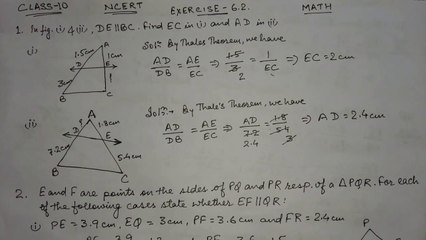 CLASS-10 NCERT EXERCISE-6.2. MATH
1. In fig. (i) & (ii), DE∥BC. Find EC in (i) and AD in (ii)
(i)
A
1.5cm
1cm
D
E
3cm
B
C
Sol:- By Thales Theorem, we have
AD/DB = AE/EC ⇒ 1.5/3 = 1/EC ⇒ EC = 2cm
2
(ii)
A
1.8cm
D
E
7.2cm
5.4cm
B
C
Sol:- By Thale's Theorem, we have
AD/DB = AE/EC ⇒ AD/7.2 = 1.8/5.4 ⇒ AD = 2.4cm
2.4 3
2. E and F are points on the sides of PQ and PR resp. of a ΔPQR. For each
of the following cases state whether EF∥QR:
(i) PE = 3.9cm, EQ = 3cm, PF = 3.6cm and FR = 2.4cm
P